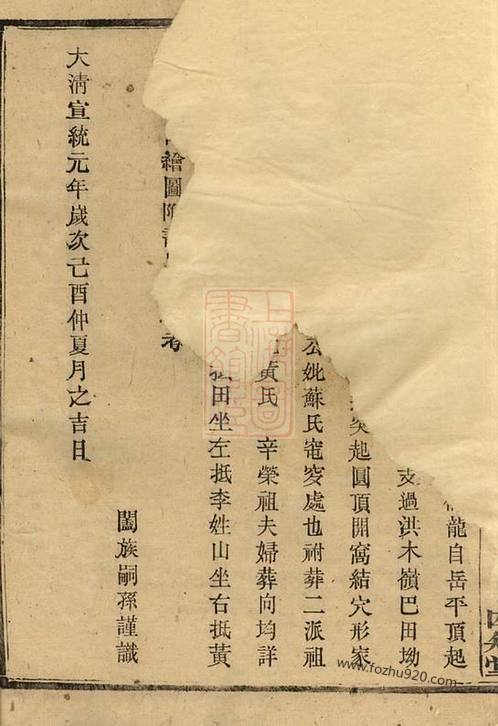 龍自岳平頂起
支過洪木嶺巴田坳
突起圓頂開窩結穴形家
公妣蘇氏窀穸處也祔葬二派祖
黃氏 辛榮祖夫婦葬向均詳
田坐左抵李姓山坐右抵黃
繪圖附
大清宣統元年歲次己酉仲夏月之吉日
闔族嗣孫謹識
上海圖書館藏
www.fozhu920.com